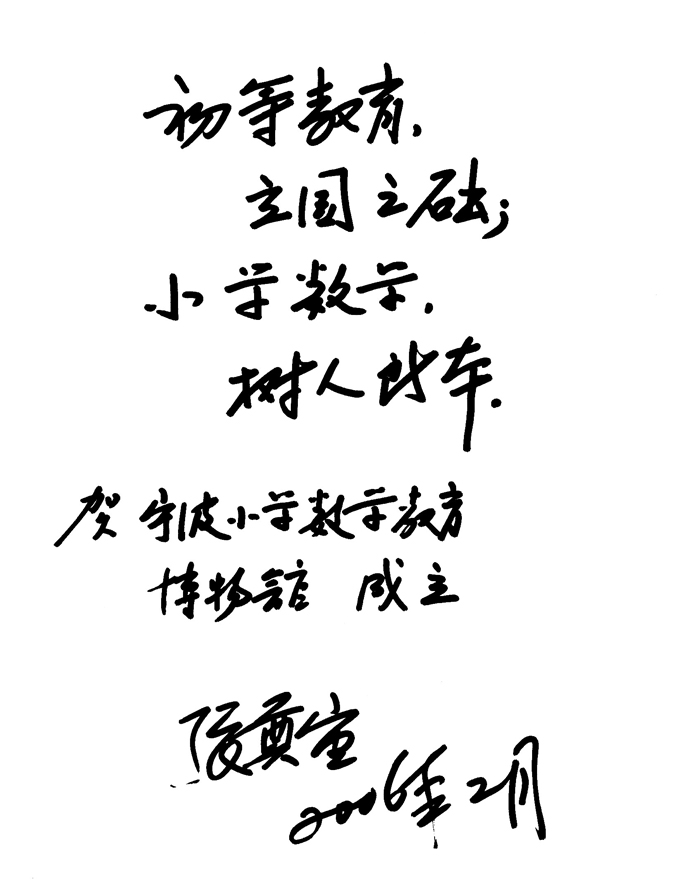 初等教育,
立国之础;
小学数学,
树人本.
贺宁波小学数学教育
博物馆 成立
张奠宙
2006年2月